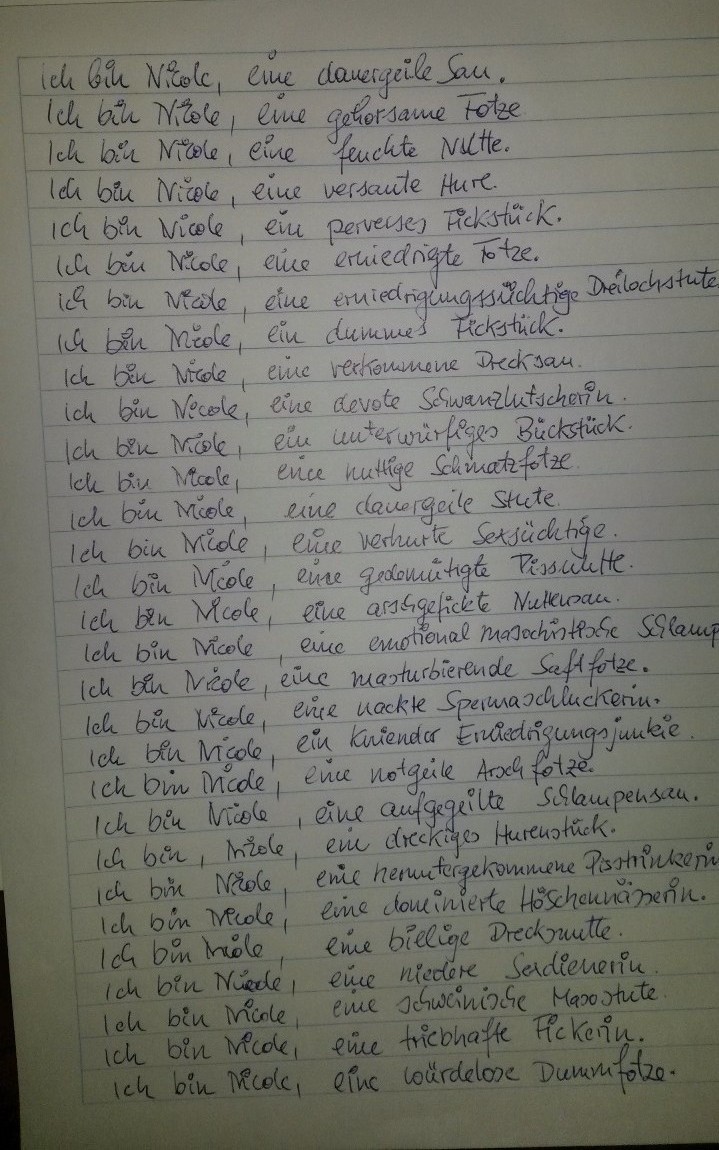 ich bin Nicole, eine dauergeile Sau.
Ich bin Nicole, eine gehorsame Fotze
Ich bin Nicole, eine feuchte Nutte.
Ich bin Nicole, eine versaute Hure.
Ich bin Nicole, ein perverses Fickstück.
Ich bin Nicole, eine erniedrigte Fotze.
Ich bin Nicole, eine erniedrigungssüchtige Dreilochstute
Ich bin Nicole, ein dummes Fickstück.
Ich bin Nicole, eine verkommene Drecksau.
Ich bin Nicole, eine devote Schwanzlutscherin.
Ich bin Nicole, ein unterwürfiges Bückstück.
Ich bin Nicole, eine nuttige Schmatzfotze
Ich bin Nicole, eine dauergeile Stute
Ich bin Nicole, eine verhurte Sexsüchtige.
Ich bin Nicole, eine gedemütigte Pissnutte.
Ich bin Nicole, eine arschgefickte Nuttensau.
Ich bin Nicole, eine emotional masochistische Schlamp
Ich bin Nicole, eine masturbierende Saftfotze.
Ich bin Nicole, eine nackte Spermaschluckerin.
Ich bin Nicole, ein kniender Erniedrigungsjunkie.
Ich bin Nicole, eine notgeile Arschfotze.
Ich bin Nicole, eine aufgegeilte Schlampensau.
Ich bin, Nicole, ein dreckiges Hurenstück.
Ich bin Nicole, eine heruntergekommene Pisstrinkerin
Ich bin Nicole, eine dominierte Höschennässerin.
Ich bin Nicole, eine billige Drecksnutte.
Ich bin Nicole, eine niedere
Ich bin Nicole, eine schweinische Masostute.
Ich bin Nicole, eine triebhafte Fickerin.
Ich bin Nicole, eine würdelose Dummfotze.